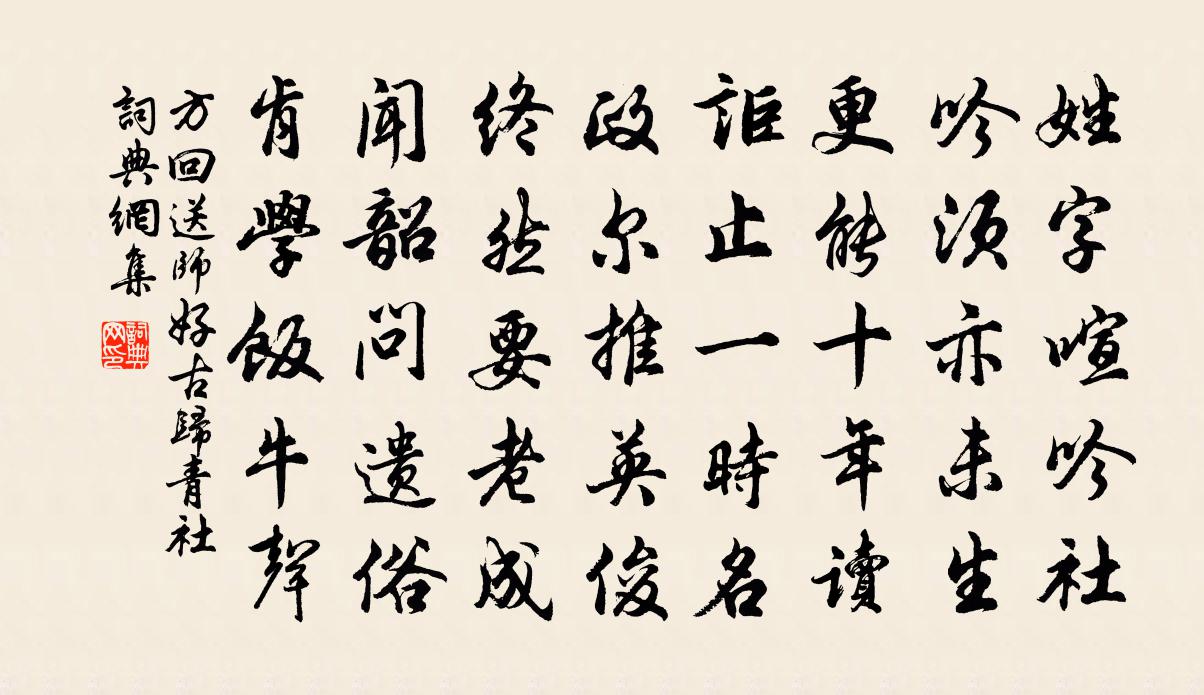 姓字喧吟社
吟须亦未生
更能十年讀
詎止一時名
政尔推英俊
终然要老成
闻韶問遗俗
肯學飯牛聲
方回送師好古歸青社
詞典網集
詞典网印